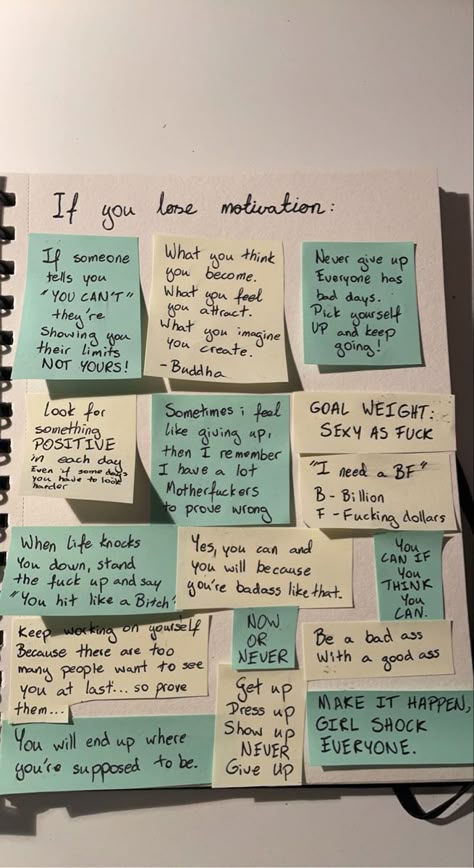 If you lose motivation:
If someone
tells you
"YOU CAN'T"
they're
Showing you
their limits
NOT YOURS!
What you think
you become.
What you feel
you attract.
What you imagine
you create.
- Buddha
Never give up
Everyone has
bad days.
Pick yourself
UP and keep
going!
Look for
something
POSITIVE
in each day
Even if some days
you have to look
harder
Sometimes i feel
like giving up,
then I remember
I have a lot
Motherfuckers
to prove wrong
GOAL WEIGHT:
SEXY AS FUCK
"I need a BF"
B - Billion
F - Fucking dollars
When life knocks
You down, stand
the fuck up and say
"You hit like a Bitch"
Yes, you can and
you will because
you're badass like that.
You
CAN IF
You
THINK
You
CAN.
Keep working on yourself
Because there are too
many people want to see
you at last... so prove
them...
NOW
OR
NEVER
Be a bad ass
With a good ass
You will end up where
you're supposed to be.
Get up
Dress up
Show up
NEVER
Give Up
MAKE IT HAPPEN,
GIRL SHOCK
EVERYONE.